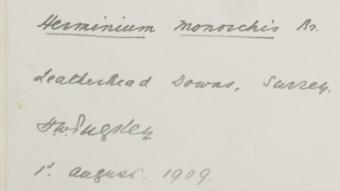 Herminium monorchis Br.
Leatherhead Downs, Surrey.
H.W. Pugsley.
1. August. 1909.